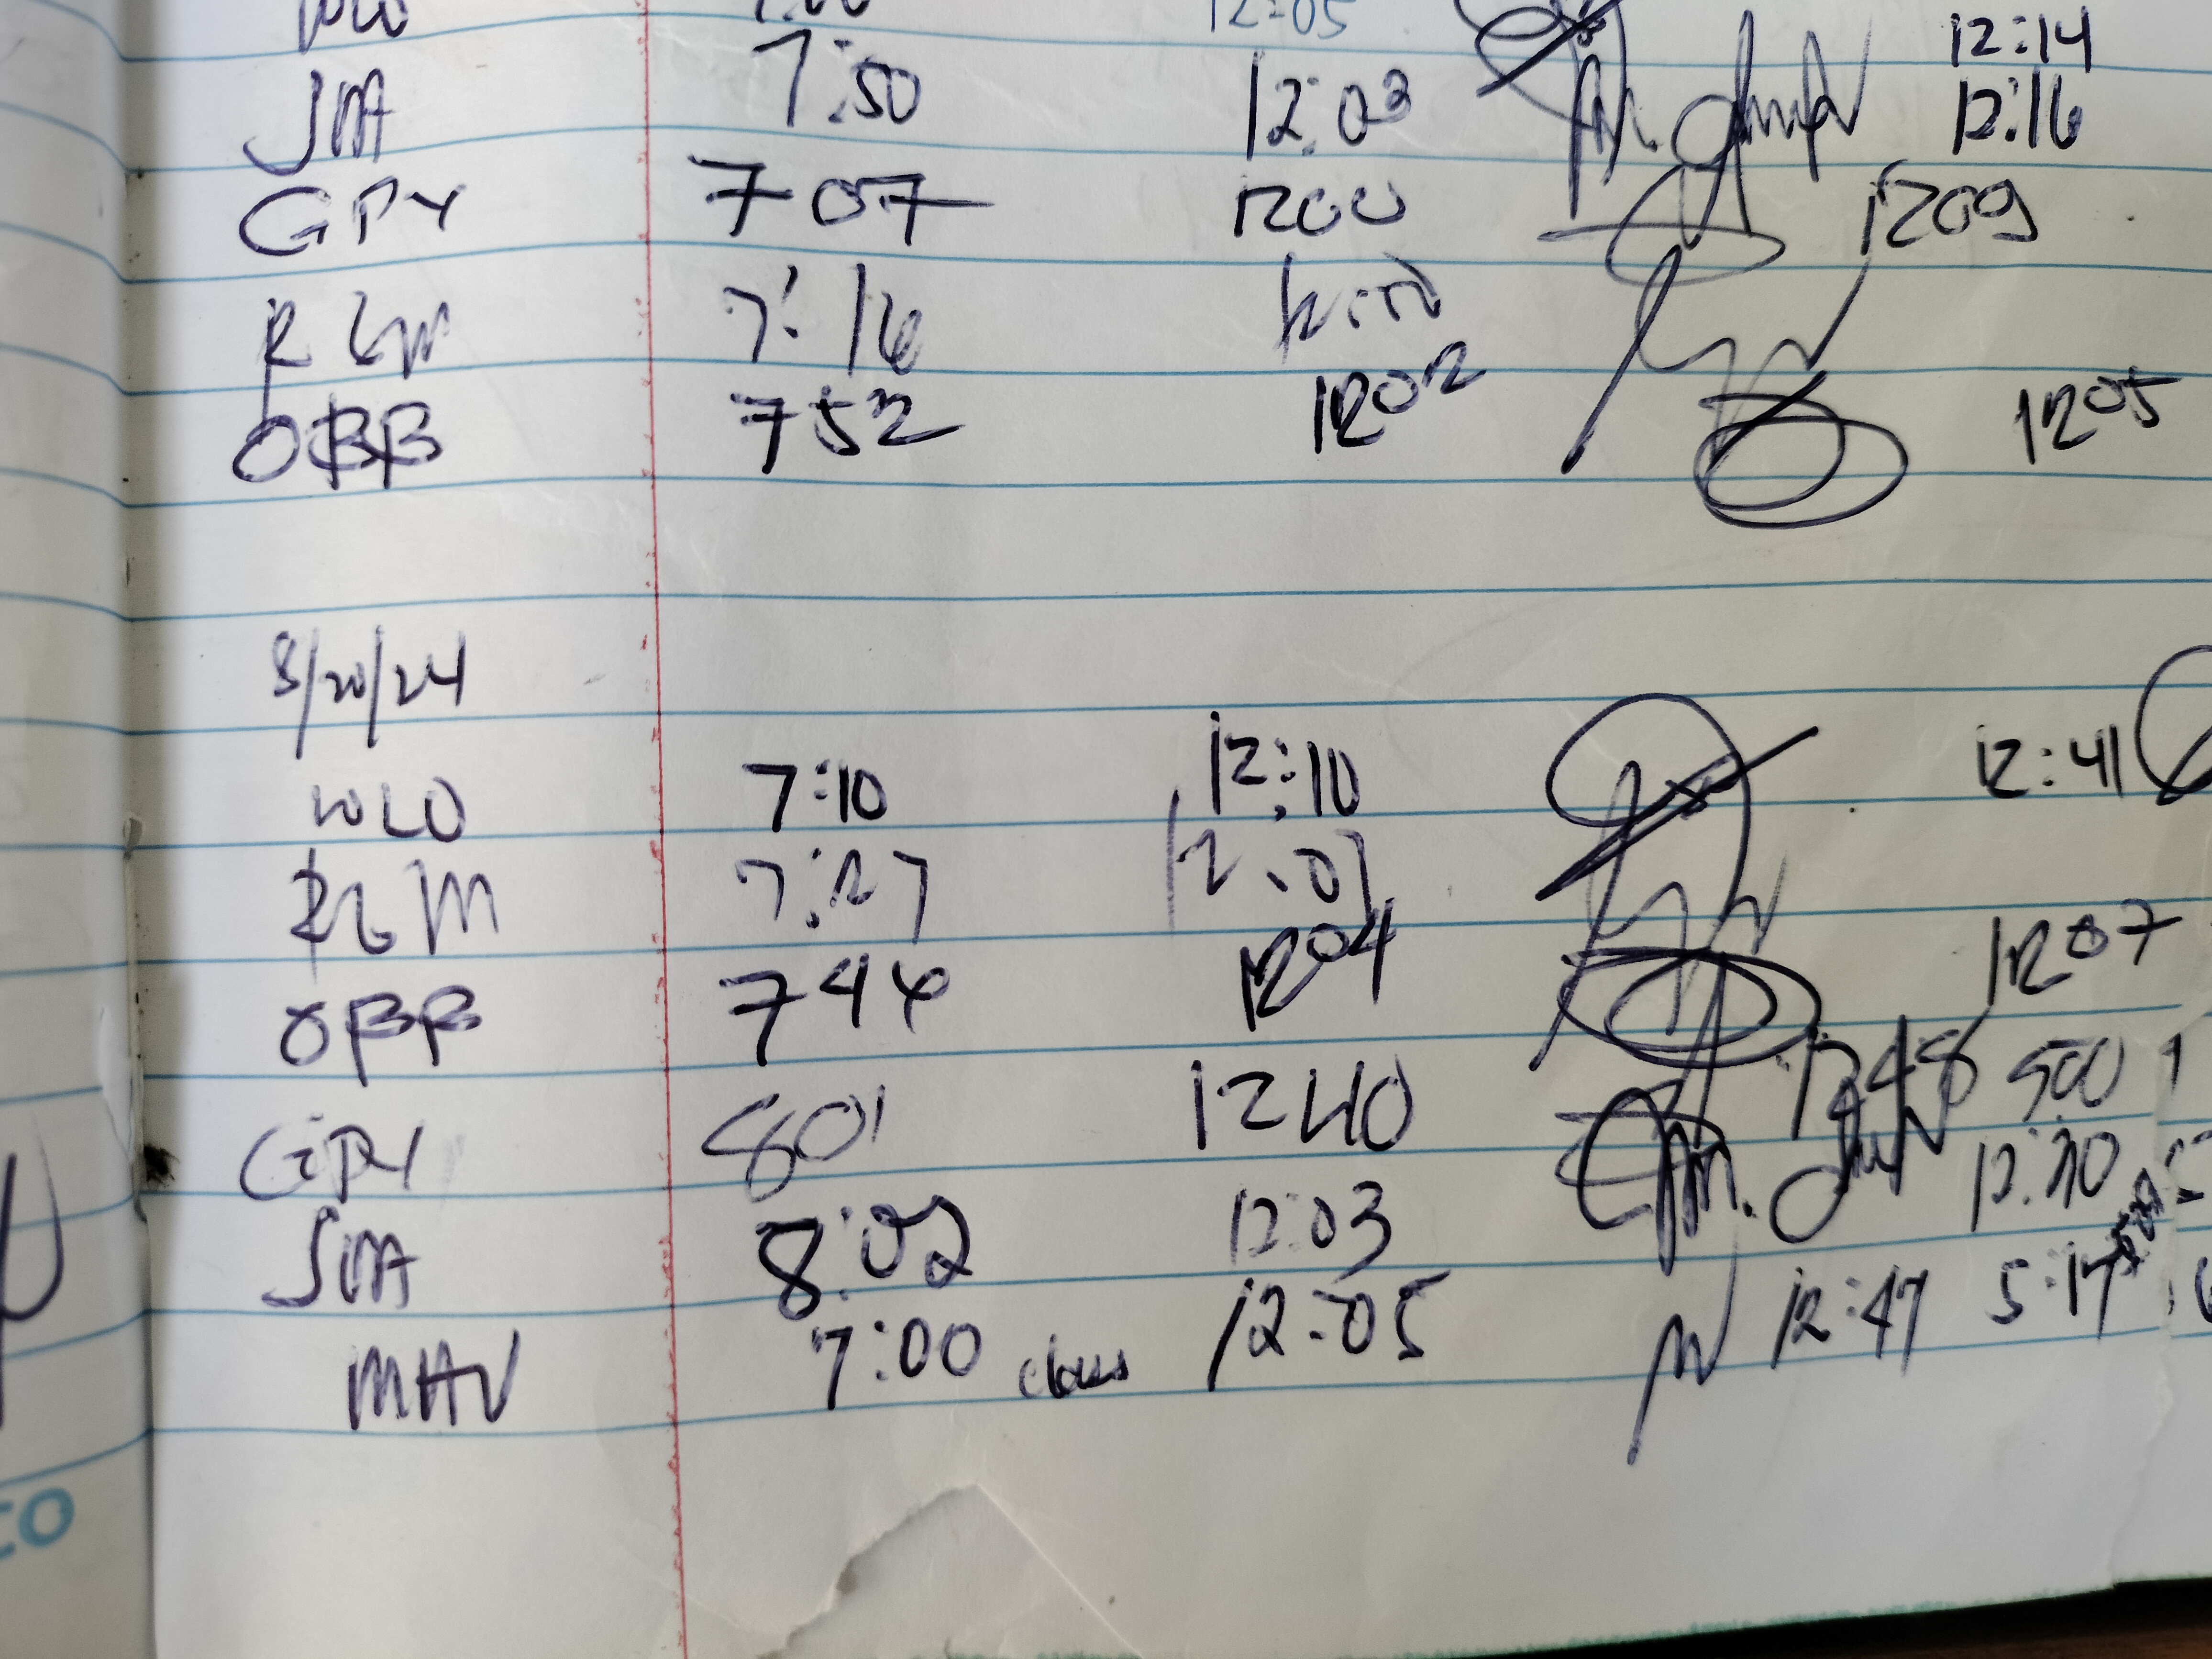 12:05 12:14
JMA 7:50 12:03 12:16
GPY 707 1200 1209
RLM 7:16
OBB 752 1202 1205
8/20/24
WLO 7:10 12:10 12:41
RLM 7:27 12:01
OBB 744 1204 1207
GPY 801 1240 1248 500
JMA 8:02 12:03 12:30
MAV 7:00 class 12:05 12:47 5:17
CO